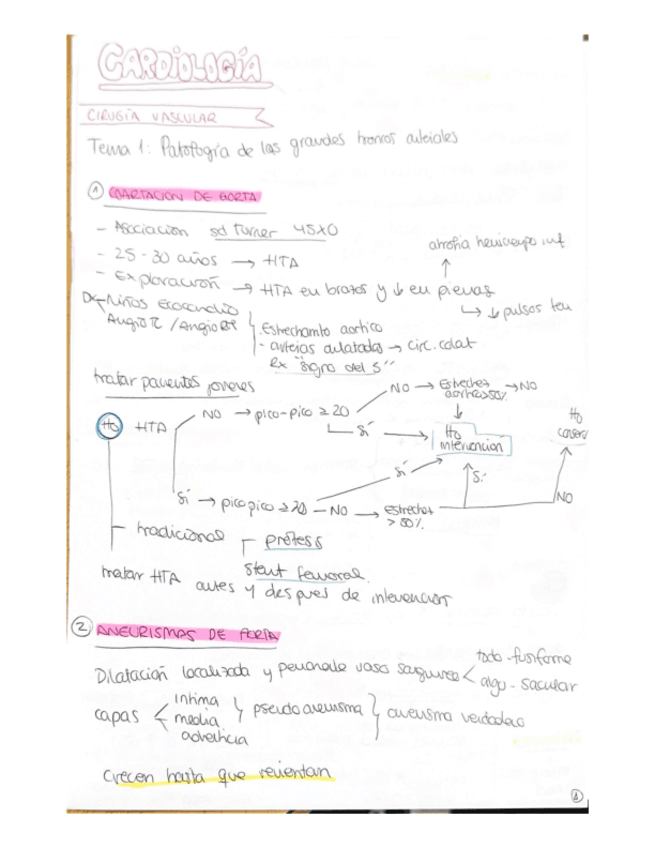 CARDIOLOGÍA
CIRUGÍA VASCULAR
Tema 1: Patología de los grandes troncos arteriales
① COARTACIÓN DE AORTA
- Asociación sd turner 45X0
- 25-30 años → HTA
atrofia hemicuerpo inf
- Exploración → HTA en brazos y ↓ en piernas
↳ ↓ pulsos fem
Dx - Niños Ecocardio
Angio TC / Angio RM
- Estrechamto aórtico
- arterias dilatadas → circ. colat
Rx "signo del 3"
tratar pacientes jóvenes
HTA
NO → pico-pico ≥ 20
NO → Estrechez aórtica >50% → NO
Sí → intervención
Sí → pico pico ≥ 20 - NO → estrechez > 50%
Sí
Sí
NO
tradicional
prótesis
Stent femoral
tratar HTA antes y después de intervención
② ANEURISMAS DE AORTA
Dilatación localizada y permanente vaso sanguíneo
todo - fusiforme
algo - sacular
capas
íntima
media
adventicia
pseudoaneurisma
aneurisma verdadero
Crecen hasta que revientan
①